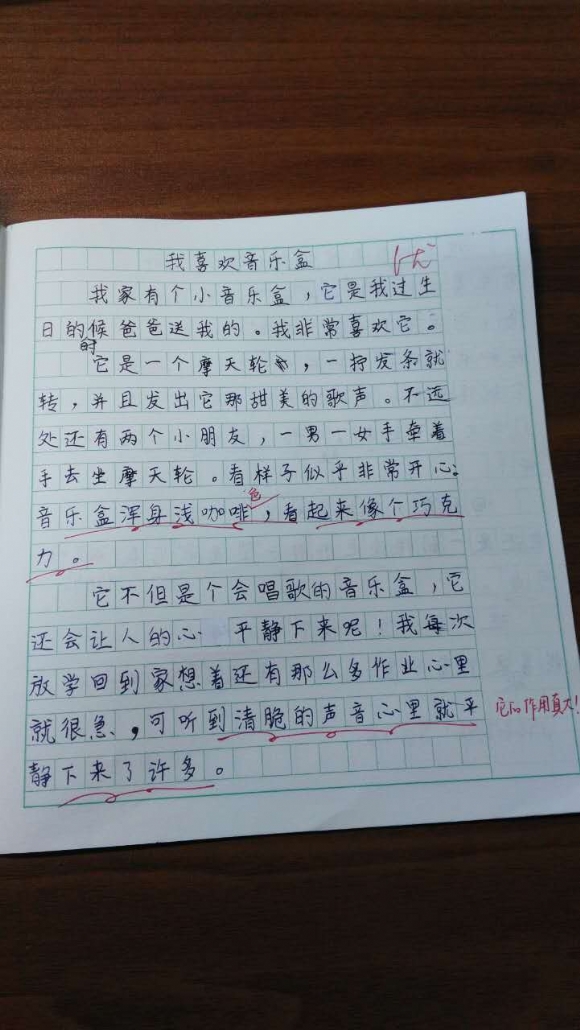 我喜欢音乐盒
优
我家有个小音乐盒，它是我过生
日的时候爸爸送我的。我非常喜欢它。
它是一个摩天轮，一拧发条就
转，并且发出它那甜美的歌声。不远
处还有两个小朋友，一男一女手牵着
手去坐摩天轮。看样子似乎非常开心。
音乐盒浑身浅咖啡色，看起来像个巧克
力。
它不但是个会唱歌的音乐盒，它
还会让人的心 平静下来呢！我每次
放学回到家想着还有那么多作业心里
就很急，可听到清脆的声音心里就平
静下来了许多。
它的作用真大！